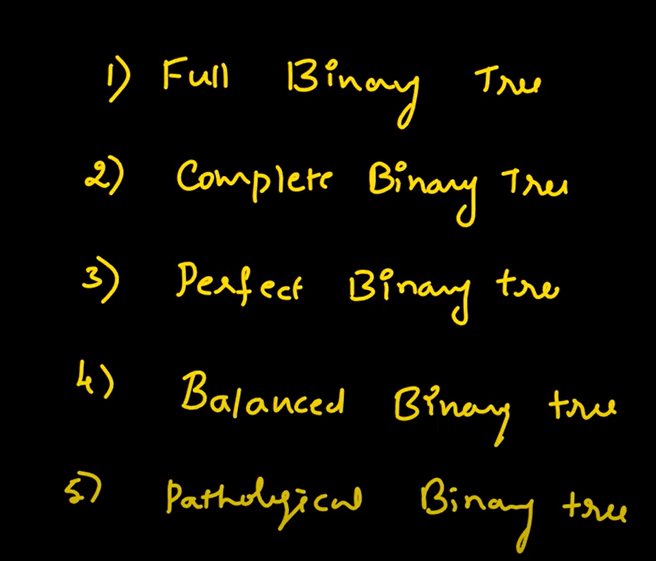 1) Full Binary Tree
2) Complete Binary Tree
3) Perfect Binary tree
4) Balanced Binary tree
5) Pathological Binary tree